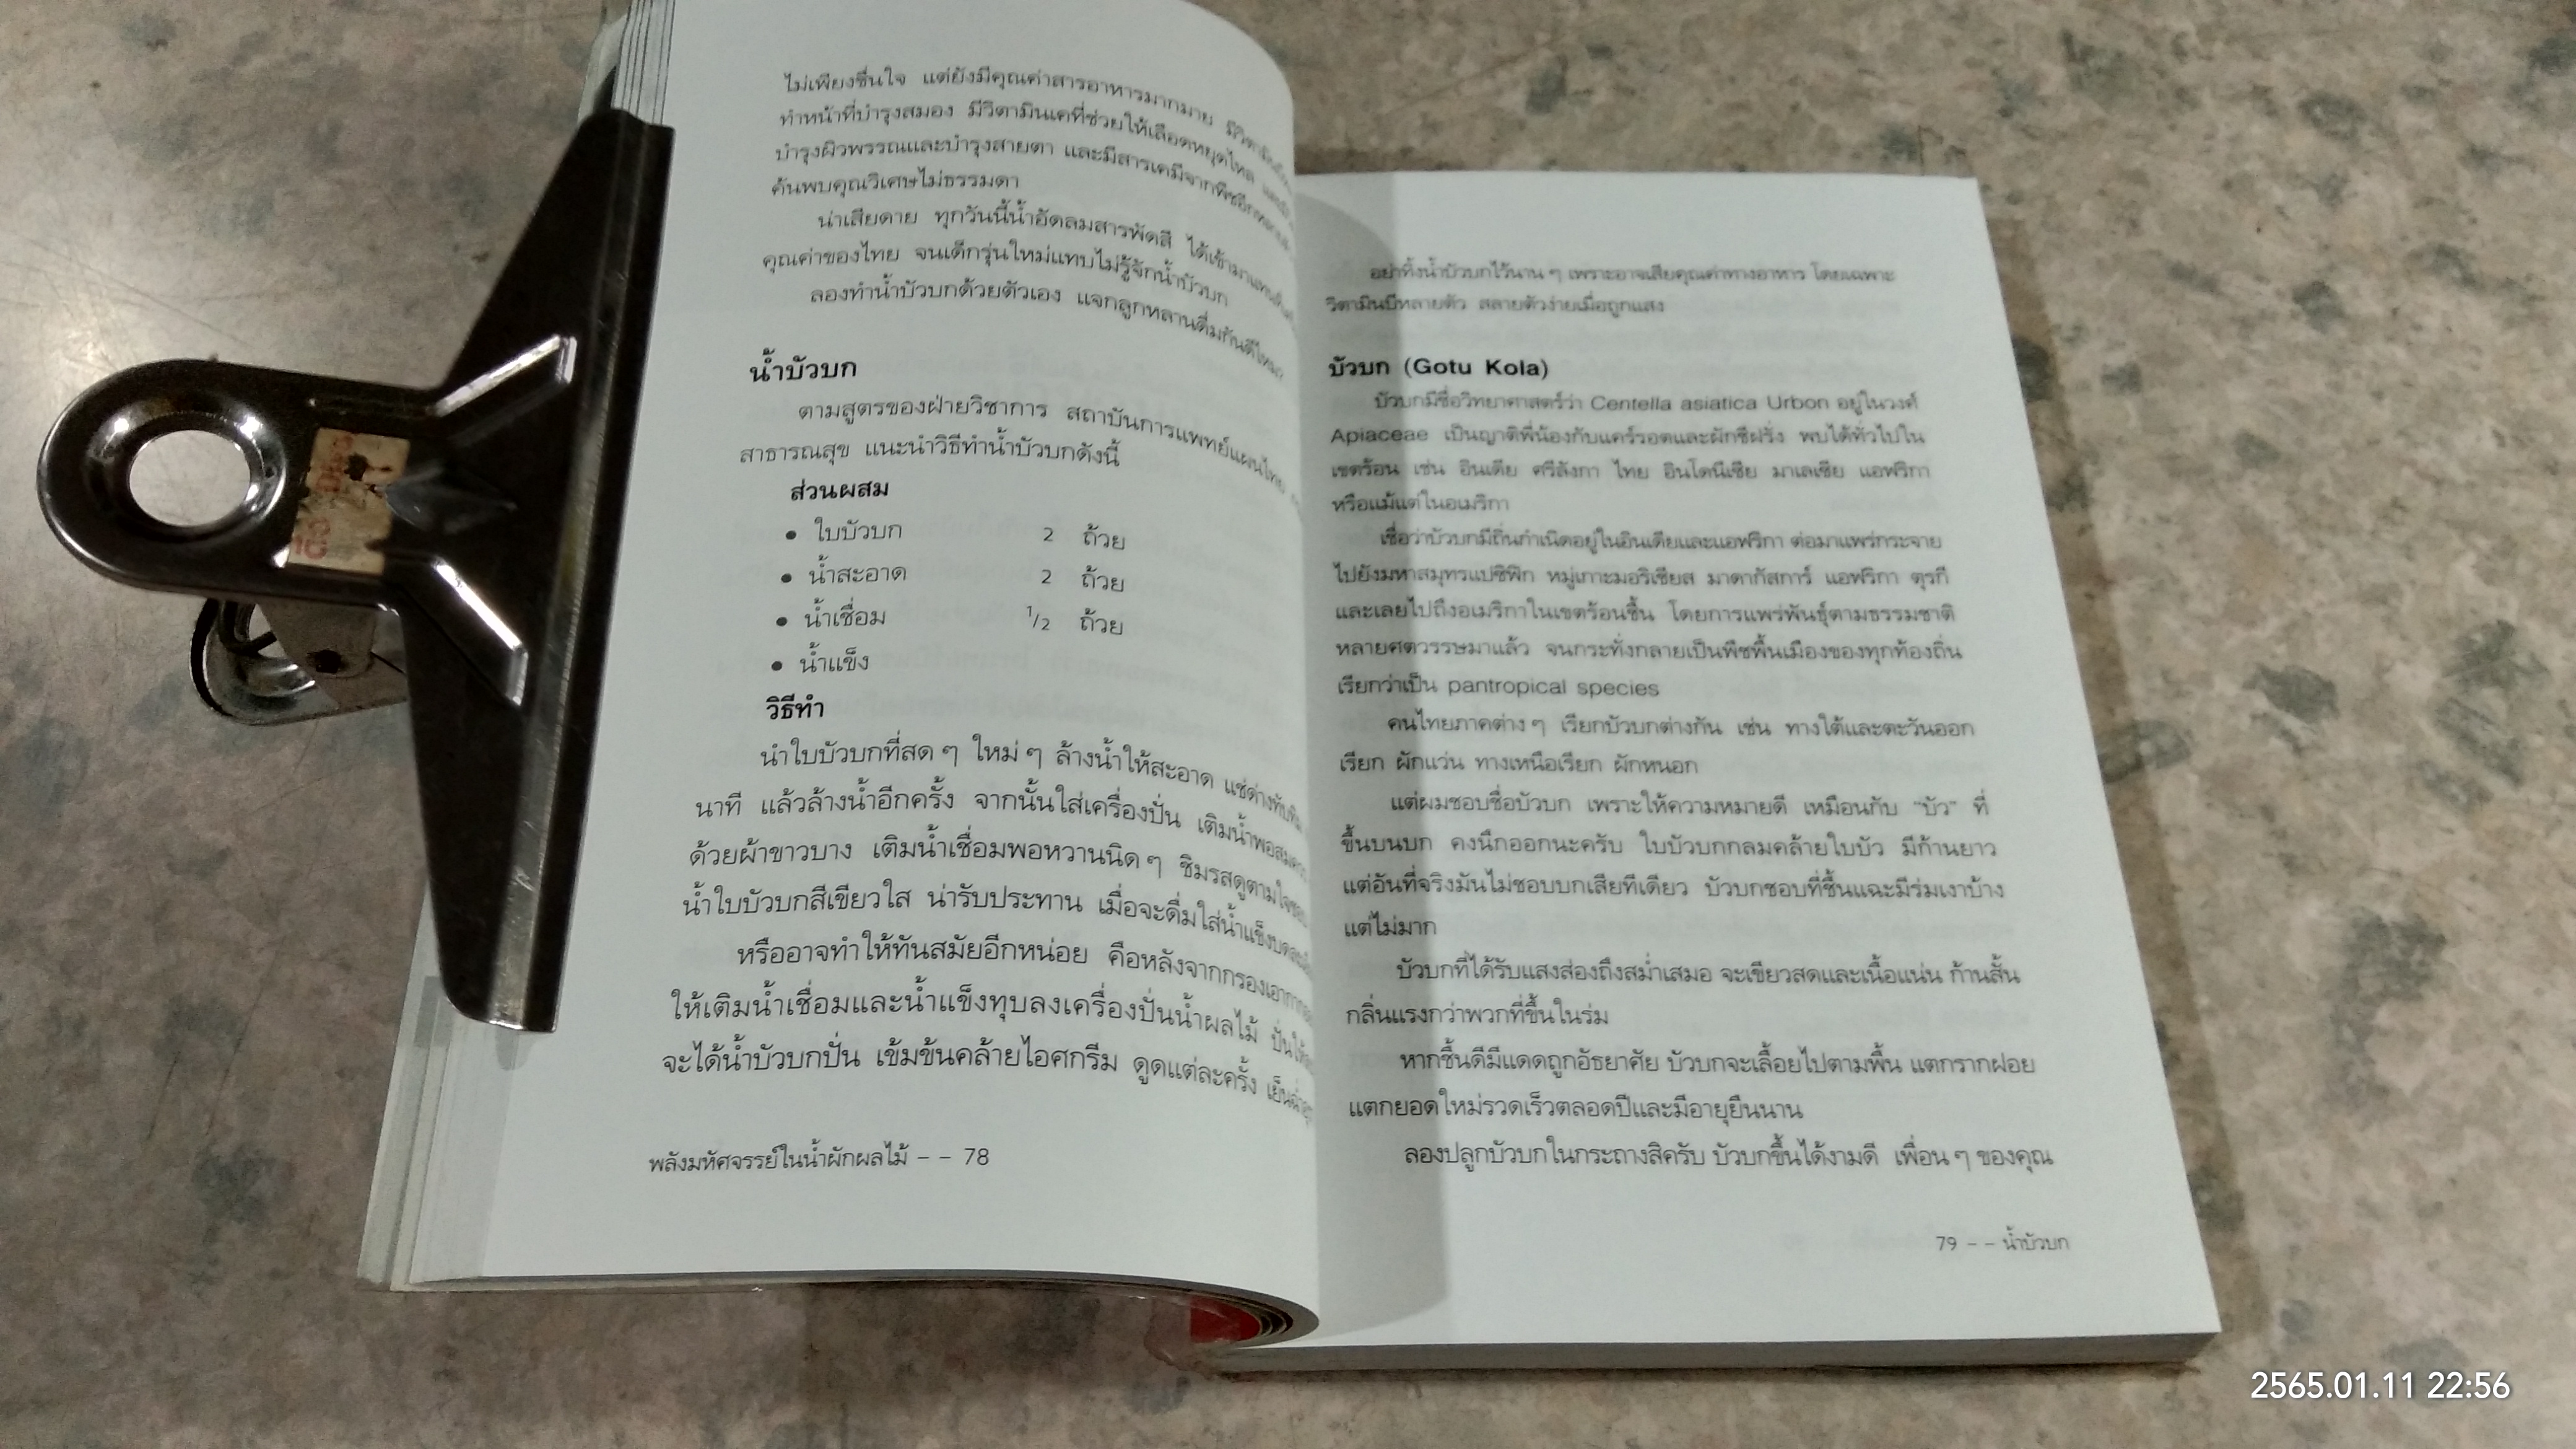 ไม่เพียงชื่นใจ แต่ยังมีคุณค่าสารอาหารมากมาย
ทำหน้าที่บำรุงสมอง มีวิตามินเคที่ช่วยให้เลือดหยุดไหล
บำรุงผิวพรรณและบำรุงสายตา และมีสารเคมีจากพืชอีก
ค้นพบคุณวิเศษไม่ธรรมดา
น่าเสียดาย ทุกวันนี้น้ำอัดลมสารพัดสี ได้เข้ามาแทน
คุณค่าของไทย จนเด็กรุ่นใหม่แทบไม่รู้จักน้ำบัวบก
ลองทำน้ำบัวบกด้วยตัวเอง แจกลูกหลานดื่มกันดีไหม
น้ำบัวบก
ตามสูตรของฝ่ายวิชาการ สถาบันการแพทย์แผนไทย
สาธารณสุข แนะนำวิธีทำน้ำบัวบกดังนี้
ส่วนผสม
• ใบบัวบก 2 ถ้วย
• น้ำสะอาด 2 ถ้วย
• น้ำเชื่อม 1/2 ถ้วย
• น้ำแข็ง
วิธีทำ
นำใบบัวบกที่สด ๆ ใหม่ ๆ ล้างน้ำให้สะอาด แช่ด่างทับทิม
นาที แล้วล้างน้ำอีกครั้ง จากนั้นใส่เครื่องปั่น เติมน้ำพอสมควร
ด้วยผ้าขาวบาง เติมน้ำเชื่อมพอหวานนิด ๆ ชิมรสดูตามใจชอบ
น้ำใบบัวบกสีเขียวใส น่ารับประทาน เมื่อจะดื่มใส่น้ำแข็งบด
หรืออาจทำให้ทันสมัยอีกหน่อย คือหลังจากกรองเอากาก
ให้เติมน้ำเชื่อมและน้ำแข็งทุบลงเครื่องปั่นน้ำผลไม้
จะได้น้ำบัวบกปั่น เข้มข้นคล้ายไอศกรีม ดูดแต่ละครั้ง
พลังมหัศจรรย์ในน้ำผักผลไม้ – – 78
อย่าทิ้งน้ำบัวบกไว้นาน ๆ เพราะอาจเสียคุณค่าทางอาหาร โดยเฉพาะ
วิตามินบีหลายตัว สลายตัวง่ายเมื่อถูกแสง
บัวบก (Gotu Kola)
บัวบกมีชื่อวิทยาศาสตร์ว่า Centella asiatica Urbon อยู่ในวงศ์
Apiaceae เป็นญาติพี่น้องกับแคร์รอตและผักชีฝรั่ง พบได้ทั่วไปใน
เขตร้อน เช่น อินเดีย ศรีลังกา ไทย อินโดนีเซีย มาเลเซีย แอฟริกา
หรือแม้แต่ในอเมริกา
เชื่อว่าบัวบกมีถิ่นกำเนิดอยู่ในอินเดียและแอฟริกา ต่อมาแพร่กระจาย
ไปยังมหาสมุทรแปซิฟิก หมู่เกาะมอริเชียส มาดากัสการ์ แอฟริกา ตุรกี
และเลยไปถึงอเมริกาในเขตร้อนชื้น โดยการแพร่พันธุ์ตามธรรมชาติ
หลายศตวรรษมาแล้ว จนกระทั่งกลายเป็นพืชพื้นเมืองของทุกท้องถิ่น
เรียกว่าเป็น pantropical species
คนไทยภาคต่าง ๆ เรียกบัวบกต่างกัน เช่น ทางใต้และตะวันออก
เรียก ผักแว่น ทางเหนือเรียก ผักหนอก
แต่ผมชอบชื่อบัวบก เพราะให้ความหมายดี เหมือนกับ "บัว" ที่
ขึ้นบนบก คงนึกออกนะครับ ใบบัวบกกลมคล้ายใบบัว มีก้านยาว
แต่อันที่จริงมันไม่ชอบบกเสียทีเดียว บัวบกชอบที่ชื้นแฉะมีร่มเงาบ้าง
แต่ไม่มาก
บัวบกที่ได้รับแสงส่องถึงสม่ำเสมอ จะเขียวสดและเนื้อแน่น ก้านสั้น
กลิ่นแรงกว่าพวกที่ขึ้นในร่ม
หากชื้นดีมีแดดถูกอัธยาศัย บัวบกจะเลื้อยไปตามพื้น แตกรากฝอย
แตกยอดใหม่รวดเร็วตลอดปีและมีอายุยืนนาน
ลองปลูกบัวบกในกระถางสิครับ บัวบกขึ้นได้งามดี เพื่อน ๆ ของคุณ
79 – – น้ำบัวบก
2565.01.11 22:56